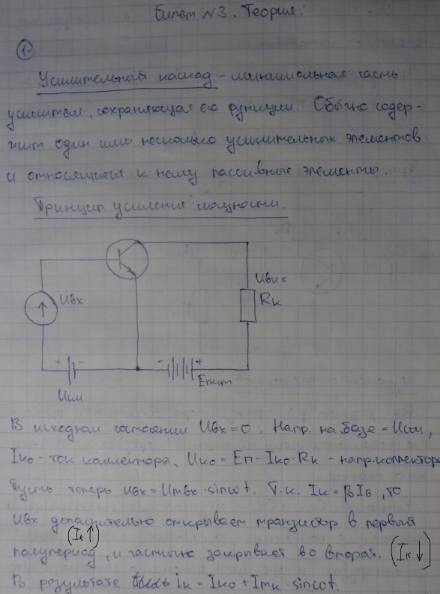 Билет N3. Теория.
1.
Усилительный каскад – минимальная часть
усилителя, сохраняющая его функции. Обычно содер-
жит один или несколько усилительных элементов
и относящиеся к нему пассивные элементы.
Принцип усиления мощности.
Uвх
Uвых
Rк
+ -
- +
Uсм
Eпит
В исходном состоянии Uвх=0. Напр. на базе = Uсм,
Iко - ток коллектора, Uко = Еп - Iко·Rк - напр. коллектора
Пусть теперь uвх = Umвх·sinωt. Т.к. Iк = βIб, то
Uвх дополнительно открывает транзистор в первый
(Iк↑)
полупериод, и частично закрывает во второй. (Iк↓)
В результате iк = Iко + Imк·sinωt.